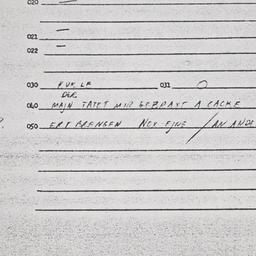 020 —
021 —
022 —
030 FUR LF 031 O
DER
040 MAJN TATET MIR GEBRAXT A CACKE
050 ERT BRENGEN NOX EJNE / AN ANDE